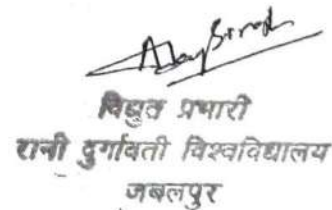 विद्युत प्रभारी
रानी दुर्गावती विश्वविद्यालय
जबलपुर